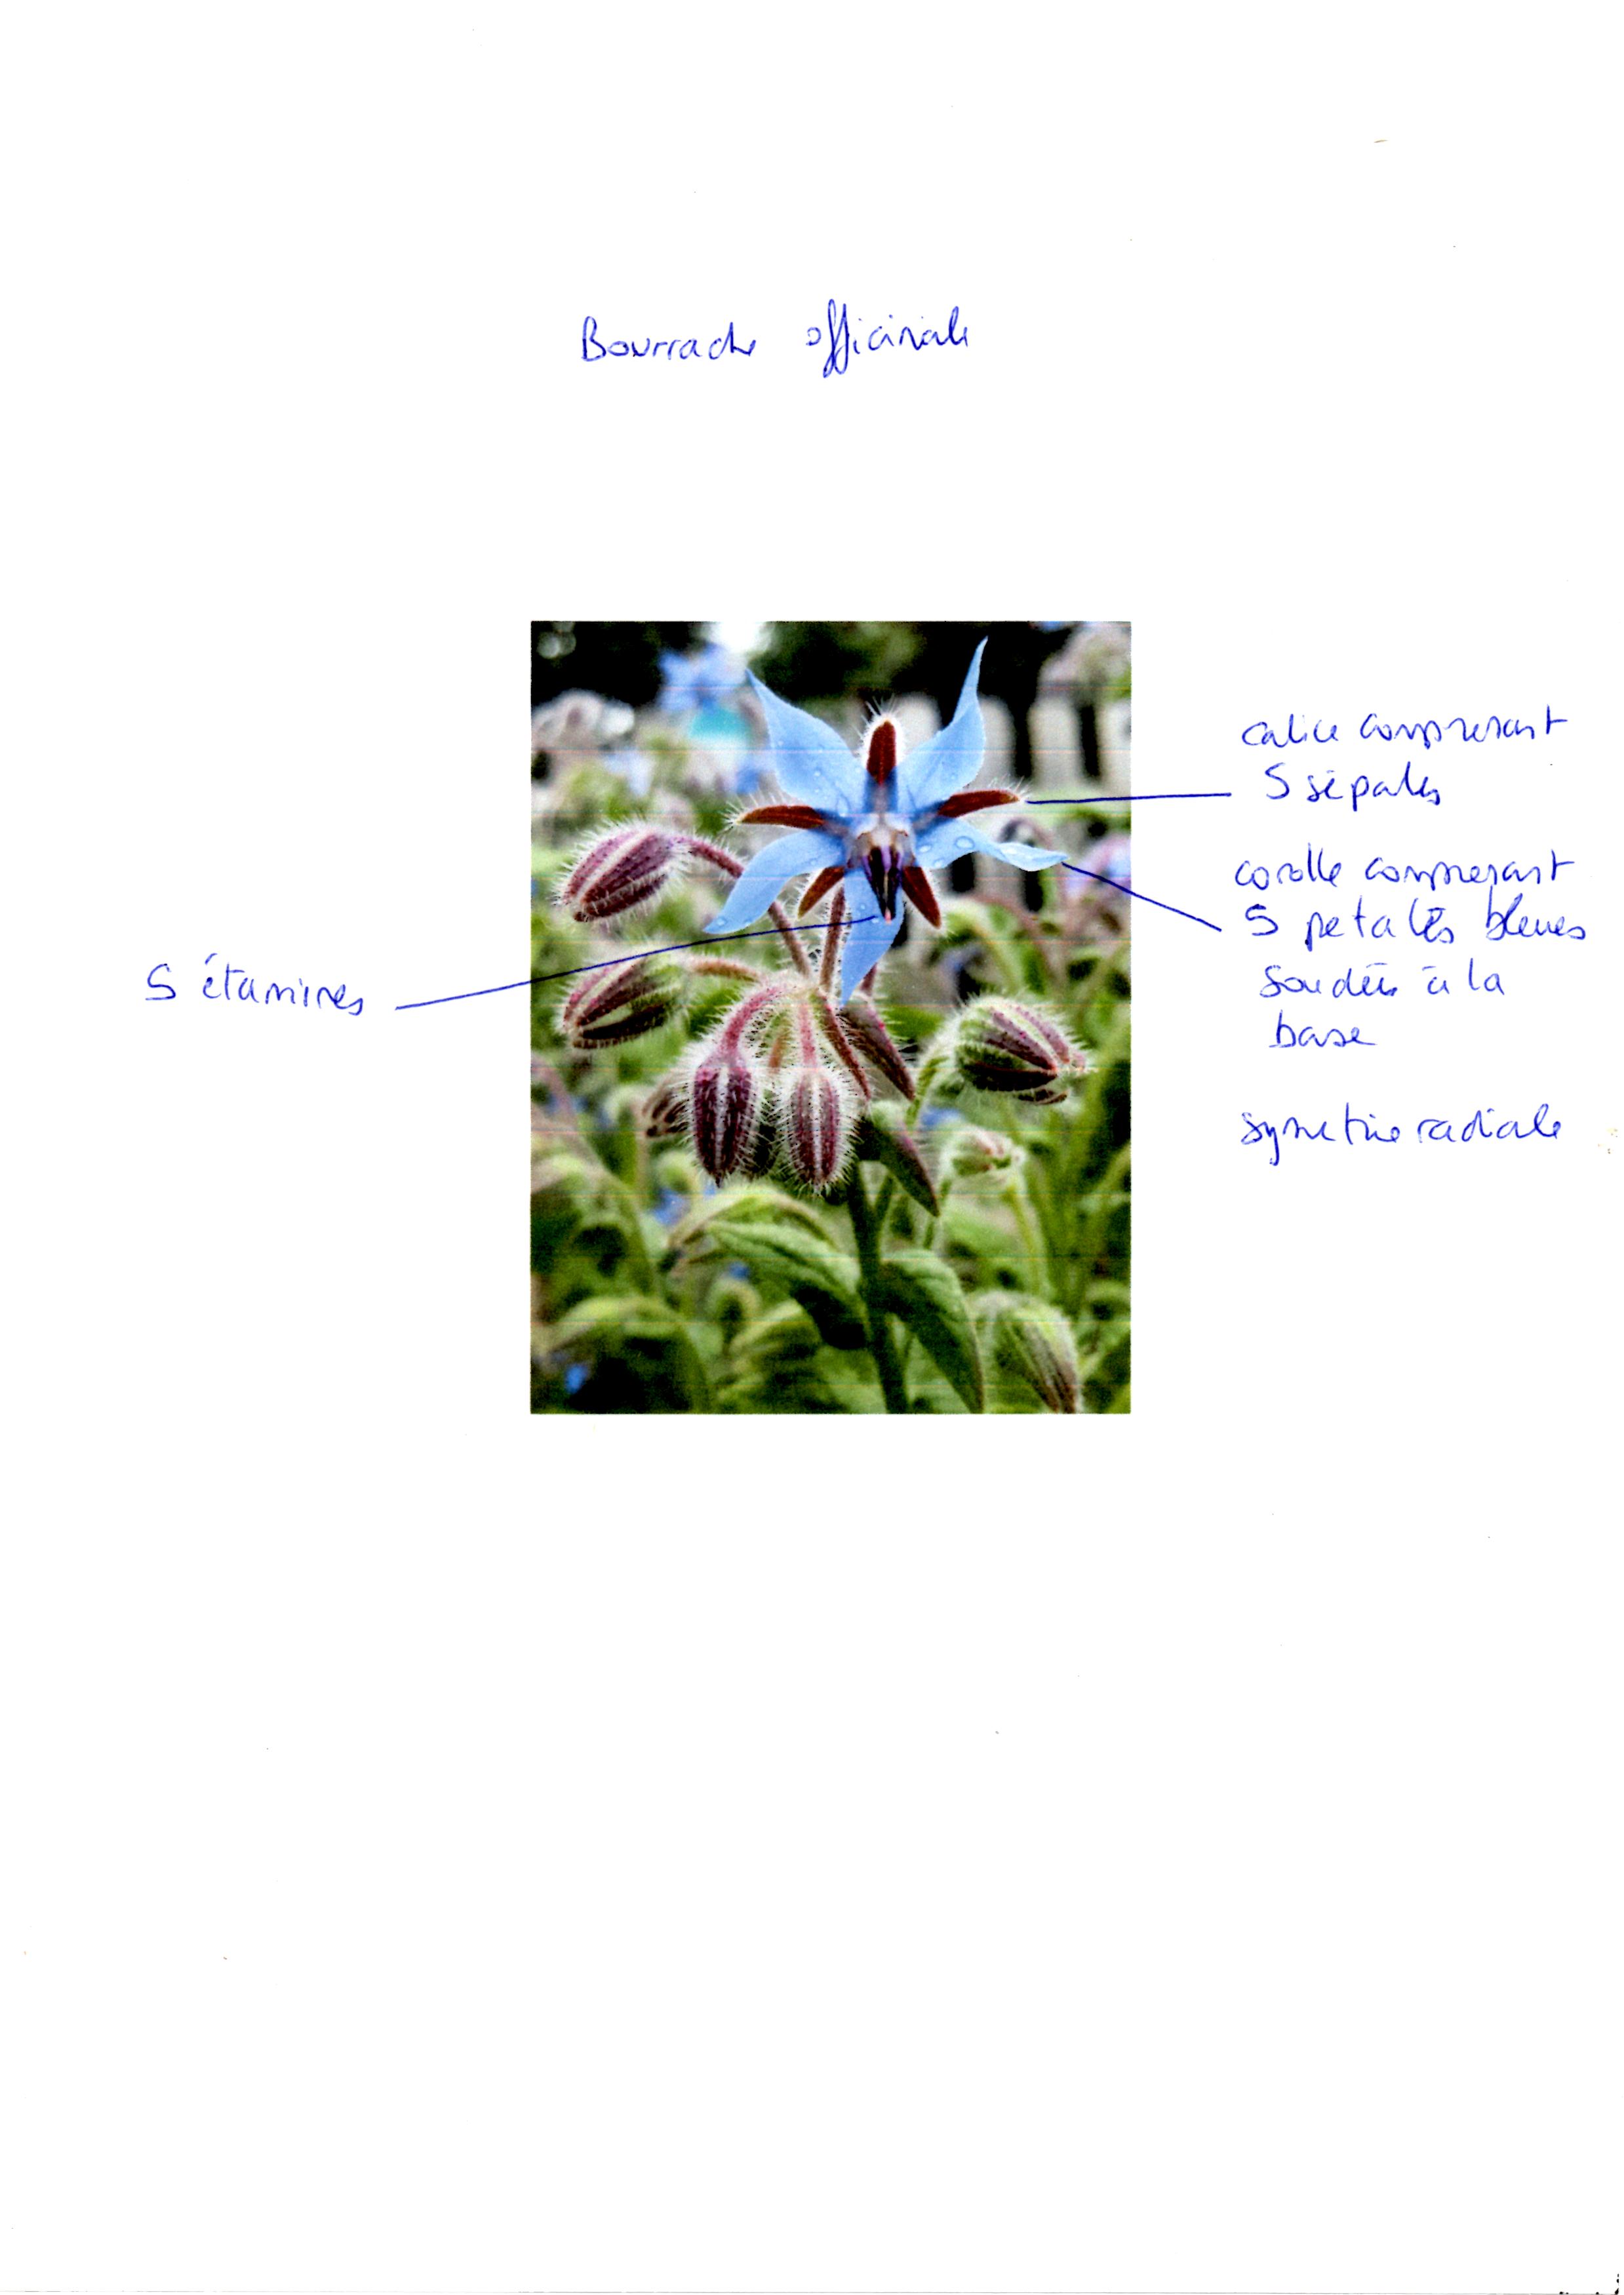 Bourrache officinale
calice comprenant
5 sépales
corolle comprenant
5 petales bleues
soudés à la
base
5 étamines
symetrie radiale